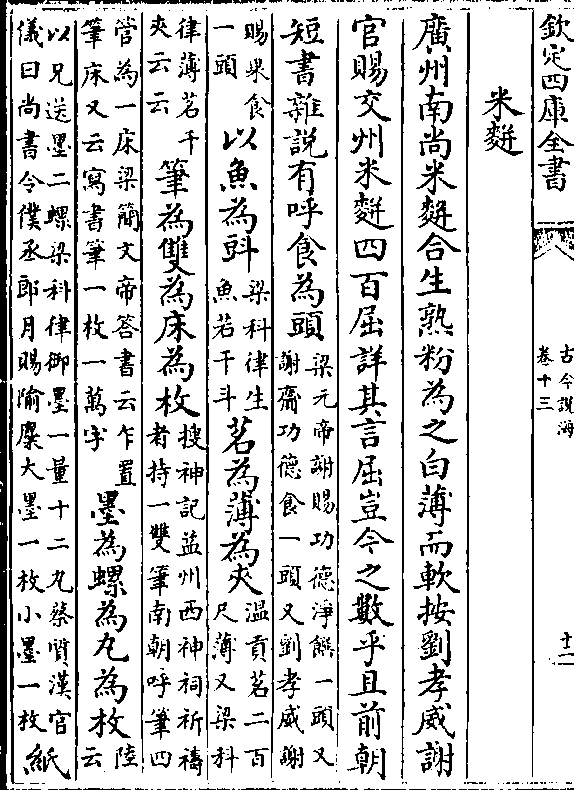 欽定四庫全書
古今說海
卷十三
十二
米䴵
廣州南尚米䴵合生熟粉為之白薄而軟按劉孝威謝
官賜交州米䴵四百屈詳其言屈豈今之數乎且前朝
短書雜說有呼食為頭
梁元帝謝賜功德淨饌一頭又
謝齎功德食一頭又劉孝威謝
賜果食
一頭
以魚為㪷
梁科律生
魚若干斗
茗為薄為夾
溫貢茗二百
尺薄又梁科
律薄茗千
夾云云
筆為雙為床為枚
搜神記益州西神祠祈禱
者持一雙筆南朝呼筆四
管為一床梁簡文帝答書云乍置
筆床又云寫書筆一枚一萬字
墨為螺為丸為枚
陸
云
以兄送墨二螺梁科律御墨一量十二丸蔡質漢官
儀曰尚書令僕丞郎月賜隃麋大墨一枚小墨一枚
紙